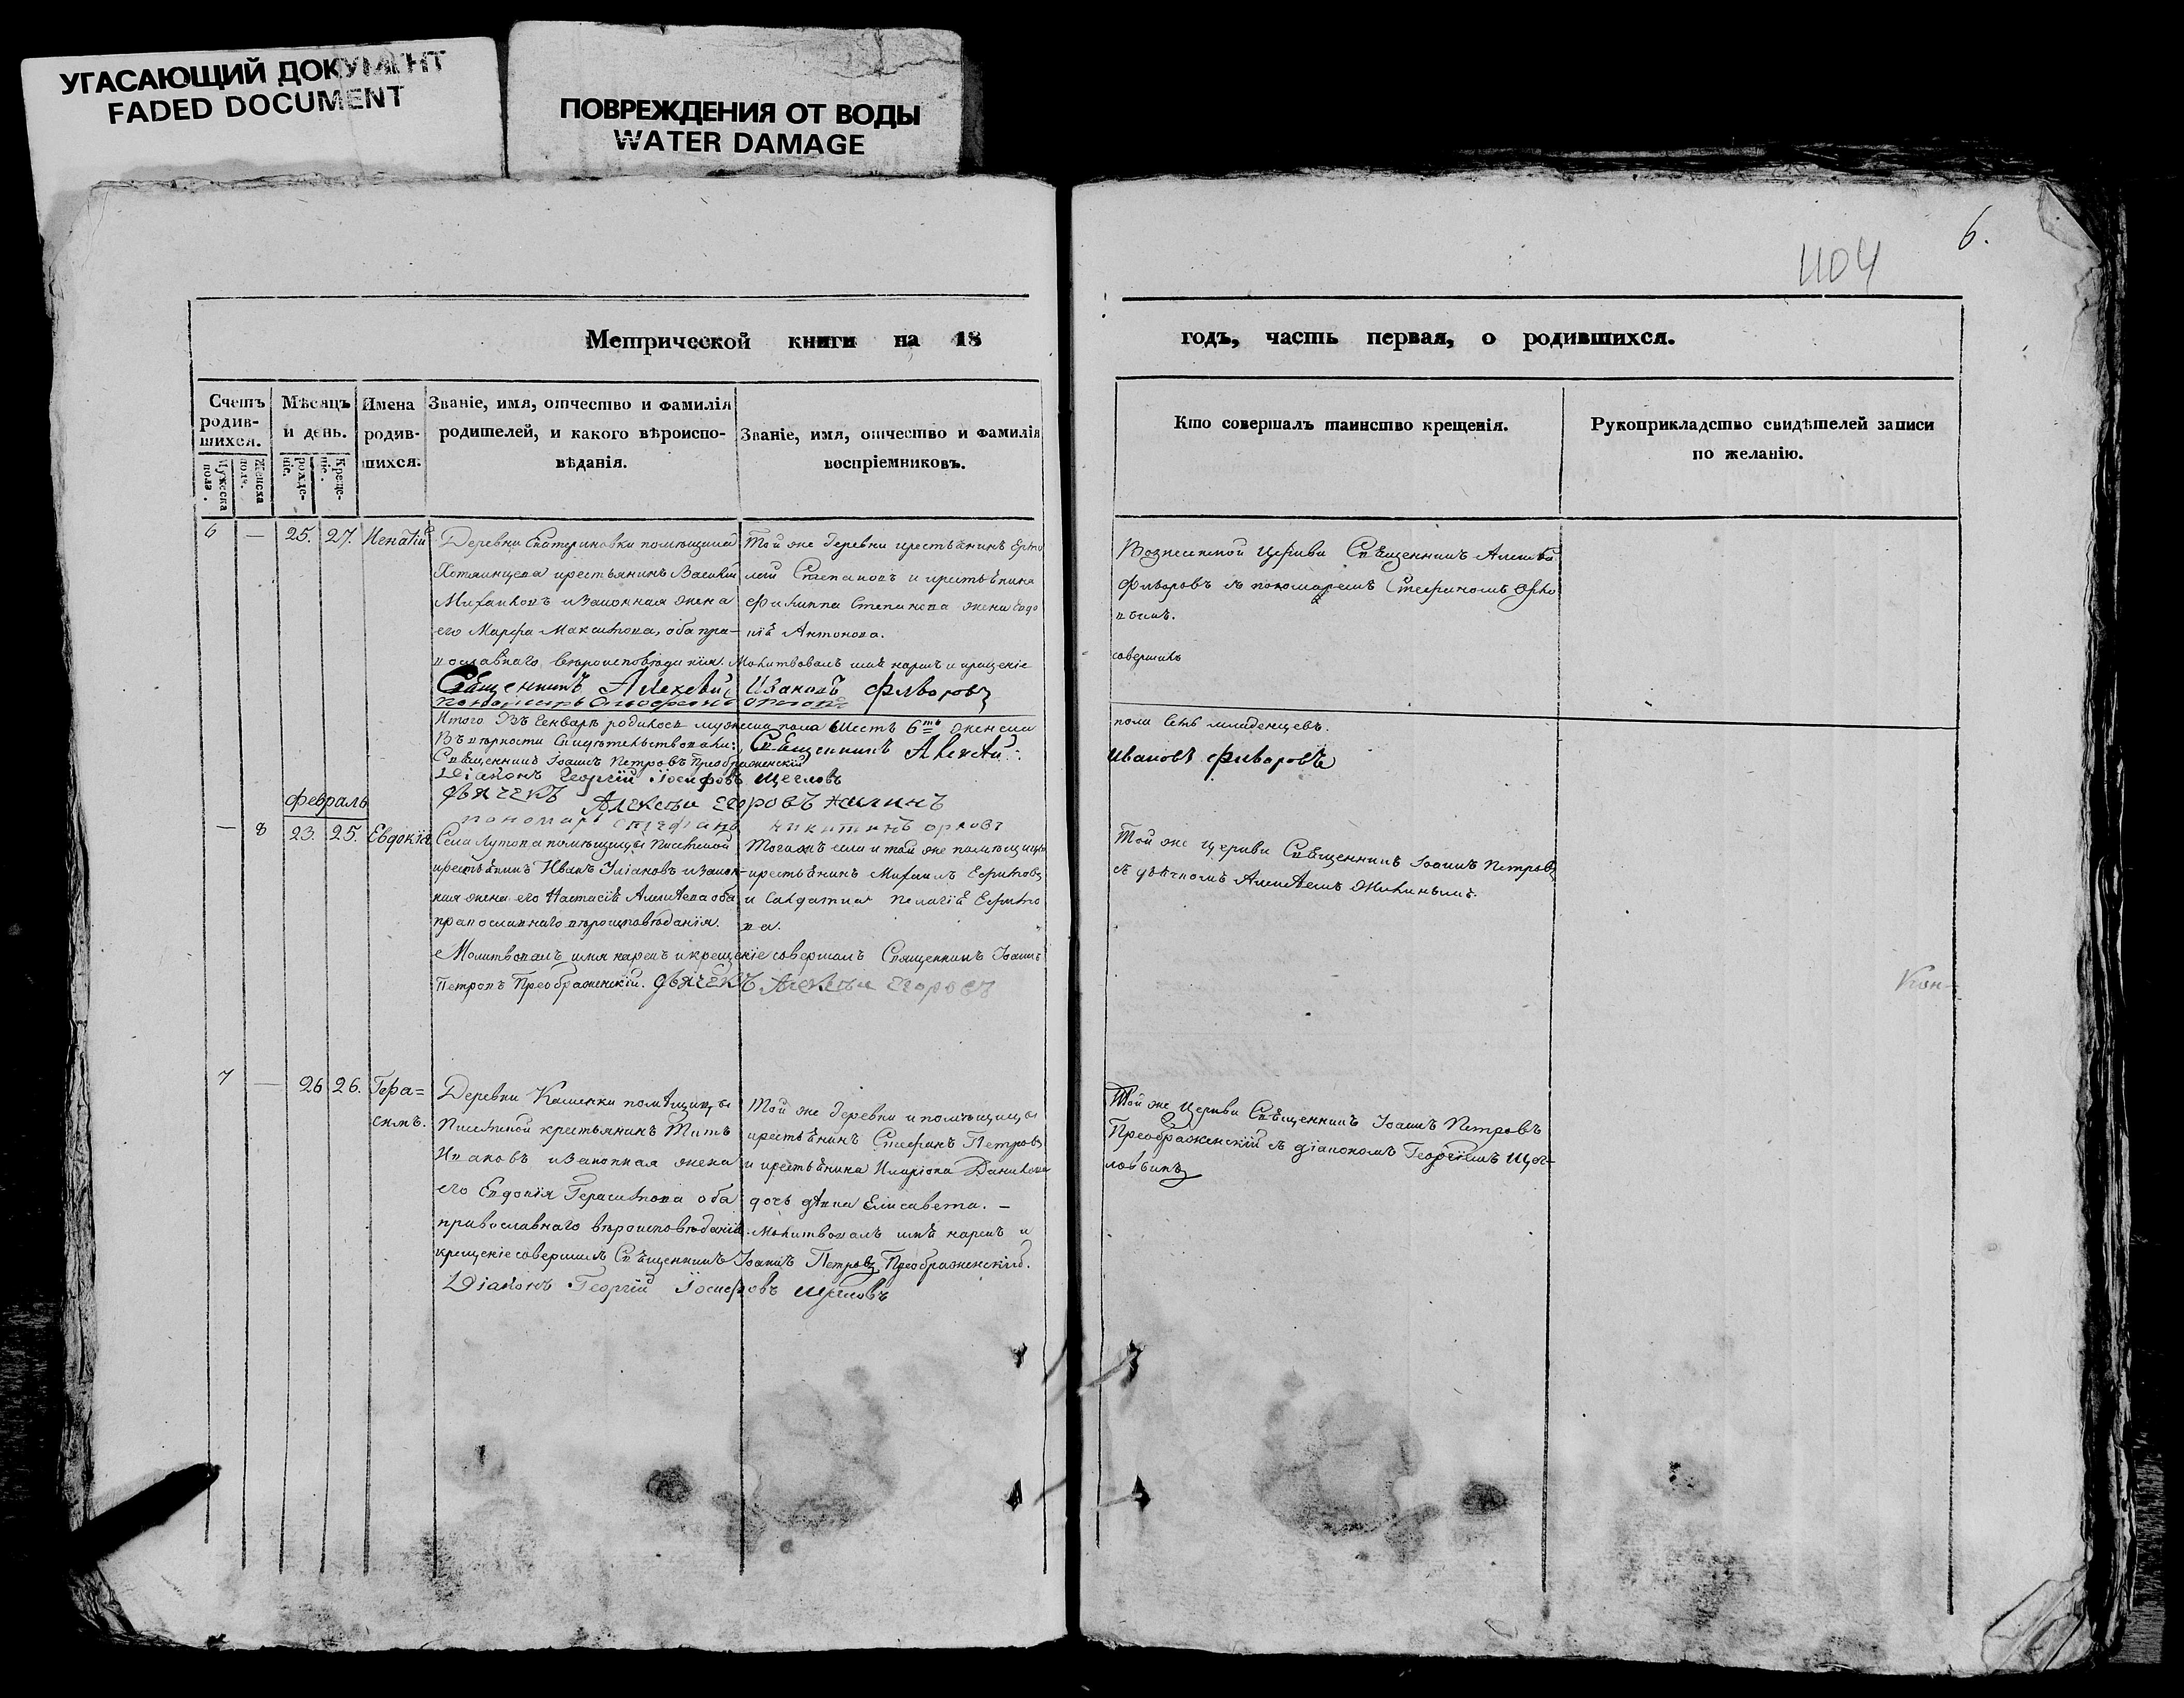 УГАСАЮЩИЙ ДОКУМЕНТ
FADED DOCUMENT
ПОВРЕЖДЕНИЯ ОТ ВОДЫ
WATER DAMAGE
6.
404
Метрической книги на 18
годъ, часть первая, о родившихся.
Счетъ родив-шихся.
Мужеска пола.
Женска пола.
Мѣсяцъ и день.
рожде-нія.
Креще-нія.
Имена родив-шихся.
Званіе, имя, отчество и фамилія
родителей, и какого вѣроиспо-
вѣданія.
Званіе, имя, отчество и фамилія
воспріемниковъ.
Кто совершалъ таинство крещенія.
Рукоприкладство свидѣтелей записи
по желанію.
6 — 25. 27. Игнатій
Деревни Екатериновки помѣщицы
крестьянинъ Василій
Михайловъ и законная жена
его Марфа Максимова, оба пра-
вославнаго вѣроисповѣданія.
Той же деревни крестьянинъ Ермо
лай Степановъ и крестьянина
Филиппа Степанова жена Евдо
кія Антонова.
Молитвовалъ имя нарекъ и крещеніе
совершилъ
Священникъ Алексѣй Ивановъ Фаворовъ
Вознесенской Церкви Священникъ Алексѣй
Фаворовъ съ пономаремъ Стефаномъ Орло
вымъ.
Итого въ Генварѣ родилось мужеска пола шесть 6ть женска
пола семь младенцевъ.
Въ вѣрности свидѣтельствовали: Священникъ Алексѣй
Ивановъ Фаворовъ
Священникъ Іоаннъ Петровъ Преображенскій
Діаконъ Георгій Іосифовъ Щегловъ
Дьячекъ Алексѣй Егоровъ Жилинъ
пономарь Стефанъ Никитинъ Орловъ
Февраль
— 8 23. 25. Евдокія
Села Лутова помѣщицы
крестьянинъ Иванъ Уліановъ и закон-
ная жена его Настасія Алексѣева оба
православнаго вѣроисповѣданія.
Тогожъ села и той же помѣщицы
крестьянинъ Михаилъ Ефимовъ
и Солдатка Пелагія Ефимо
ва.
Молитвовалъ имя нарекъ и крещеніе совершалъ Священникъ Іоаннъ
Петровъ Преображенскій. Дьячекъ Алексѣй Егоровъ
Той же церкви Священникъ Іоаннъ Петровъ
съ дьячкомъ Алексѣемъ Жилинымъ.
Кон-
7 — 26 26. Гера=
симъ.
Деревни Каменки помѣщицы
крестьянинъ Титъ
Ивановъ и законная жена
его Евдокія Герасимова оба
православнаго вѣроисповѣданія.
Той же деревни и помѣщицы
крестьянинъ Стефанъ Петровъ
и крестьянина Иларіона Данилова
дочь дѣвка Елисавета. —
Молитвовалъ имя нарекъ и
крещеніе совершилъ Священникъ Іоаннъ Петровъ Преображенскій.
Діаконъ Георгій Іосифовъ Щегловъ
Той же Церкви Священникъ Іоаннъ Петровъ
Преображенскій съ діакономъ Георгіемъ Щег-
ловымъ